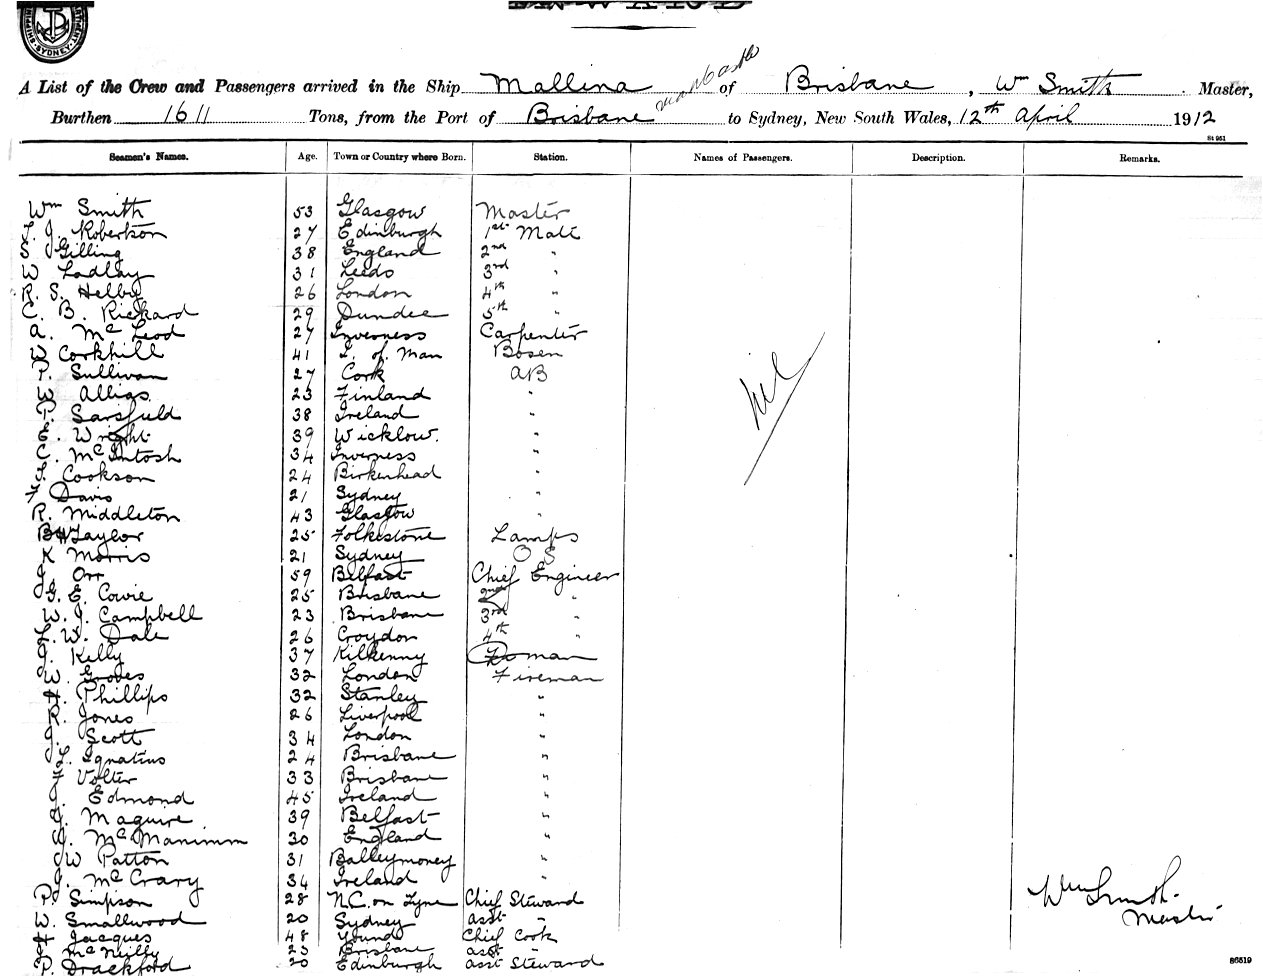 SHIPPING SYDNEY
A List of the Crew and Passengers arrived in the Ship Mallina of Brisbane, Wm Smith Master,
Burthen 1611 Tons, from the Port of Brisbane to Sydney, New South Wales, 12th April 1912
St 951
Seamen's Names. Age. Town or Country where Born. Station. Names of Passengers. Description. Remarks.
Wm Smith 53 Glasgow Master
T. J. Robertson 27 Edinburgh 1st Mate
S. Gilling 38 England 2nd "
W Ladlay 31 Leeds 3rd "
R. S. Helby 26 London 4th "
C. B. Rickard 29 Dundee 5th "
A. McLeod 27 Inverness Carpenter
W Corkhill 41 I. of Man Bosen
P. Sullivan 27 Cork AB
W Alligs 23 Finland "
P. Sarsfield 38 Ireland "
E. Wright 39 Wicklow. "
C. McIntosh 34 Inverness "
T. Cookson 24 Birkenhead "
F Davis 21 Sydney "
R. Middleton 43 Glasgow "
BH Taylor 25 Folkestone Lamps
K Morris 21 Sydney OS
J. Orr 59 Belfast Chief Engineer
G. E. Cowie 25 Brisbane 2nd "
W. J. Campbell 23 Brisbane 3rd "
L. W. Dale 26 Croydon 4th "
J. Kelly 37 Kilkenny man
W. Groves 32 London Fireman
H. Phillips 32 Stanley "
R. Jones 26 Liverpool "
J. Scott 34 London "
L. Ignatius 24 Brisbane "
F Volter 33 Brisbane "
J. Edmond 45 Ireland "
J. Maguire 39 Belfast "
J. McManimm 30 England "
W Patton 31 Balleymoney "
J. McCrary 34 Ireland "
P. Simpson 28 N.C. on Tyne Chief Steward
W. Smallwood 20 Sydney asst "
H Jacques 48 Chief Cook
J McNeilly 23 Brisbane asst "
P. Drackford 20 Edinburgh asst Steward
Nil
Wm Smith.
Master
86519